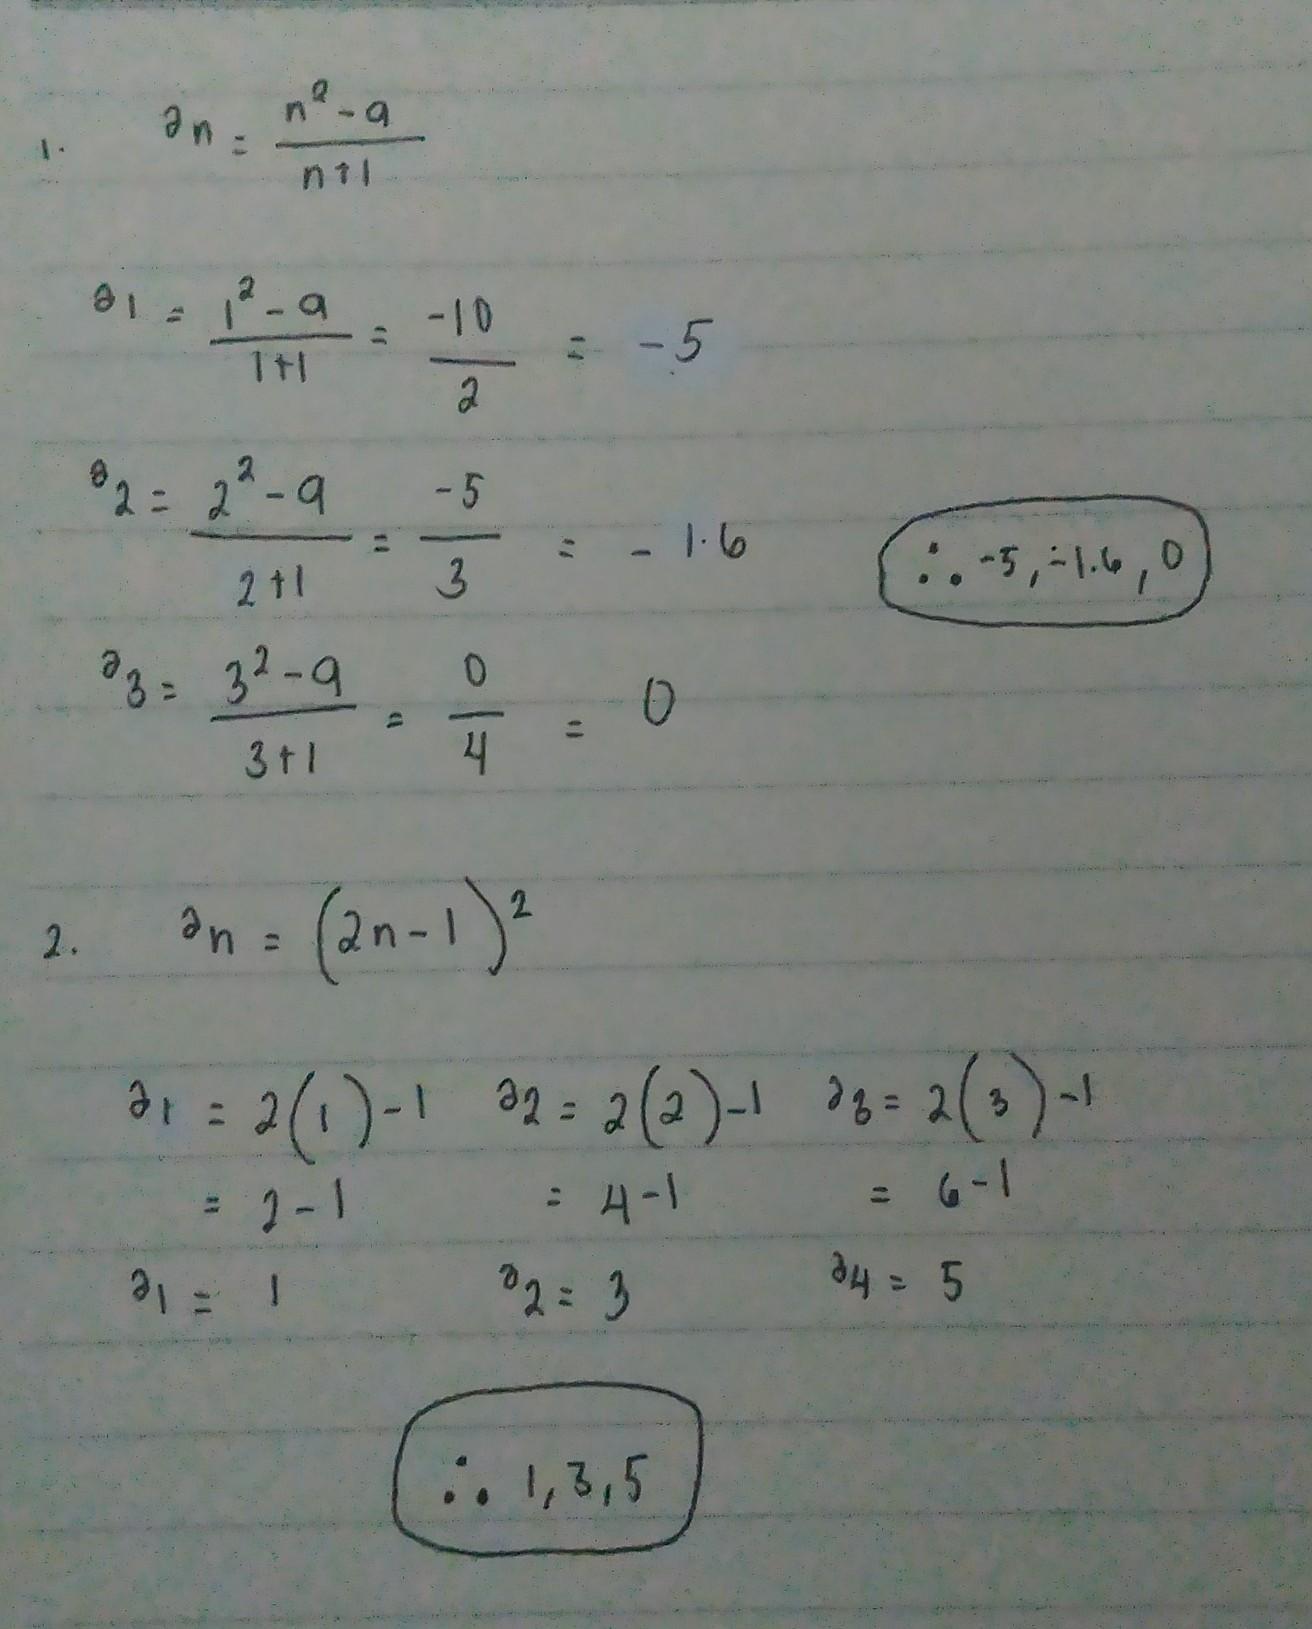 1. an = n² - 9 / n+1
a1 = 1² - 9 / 1+1 = -10 / 2 = -5
a2 = 2² - 9 / 2+1 = -5 / 3 = -1.6
∴ -5, -1.6, 0
a3 = 3² - 9 / 3+1 = 0 / 4 = 0
2. an = (2n-1)²
a1 = 2(1)-1 a2 = 2(2)-1 a3 = 2(3)-1
= 2-1 = 4-1 = 6-1
a1 = 1 a2 = 3 a4 = 5
∴ 1, 3, 5